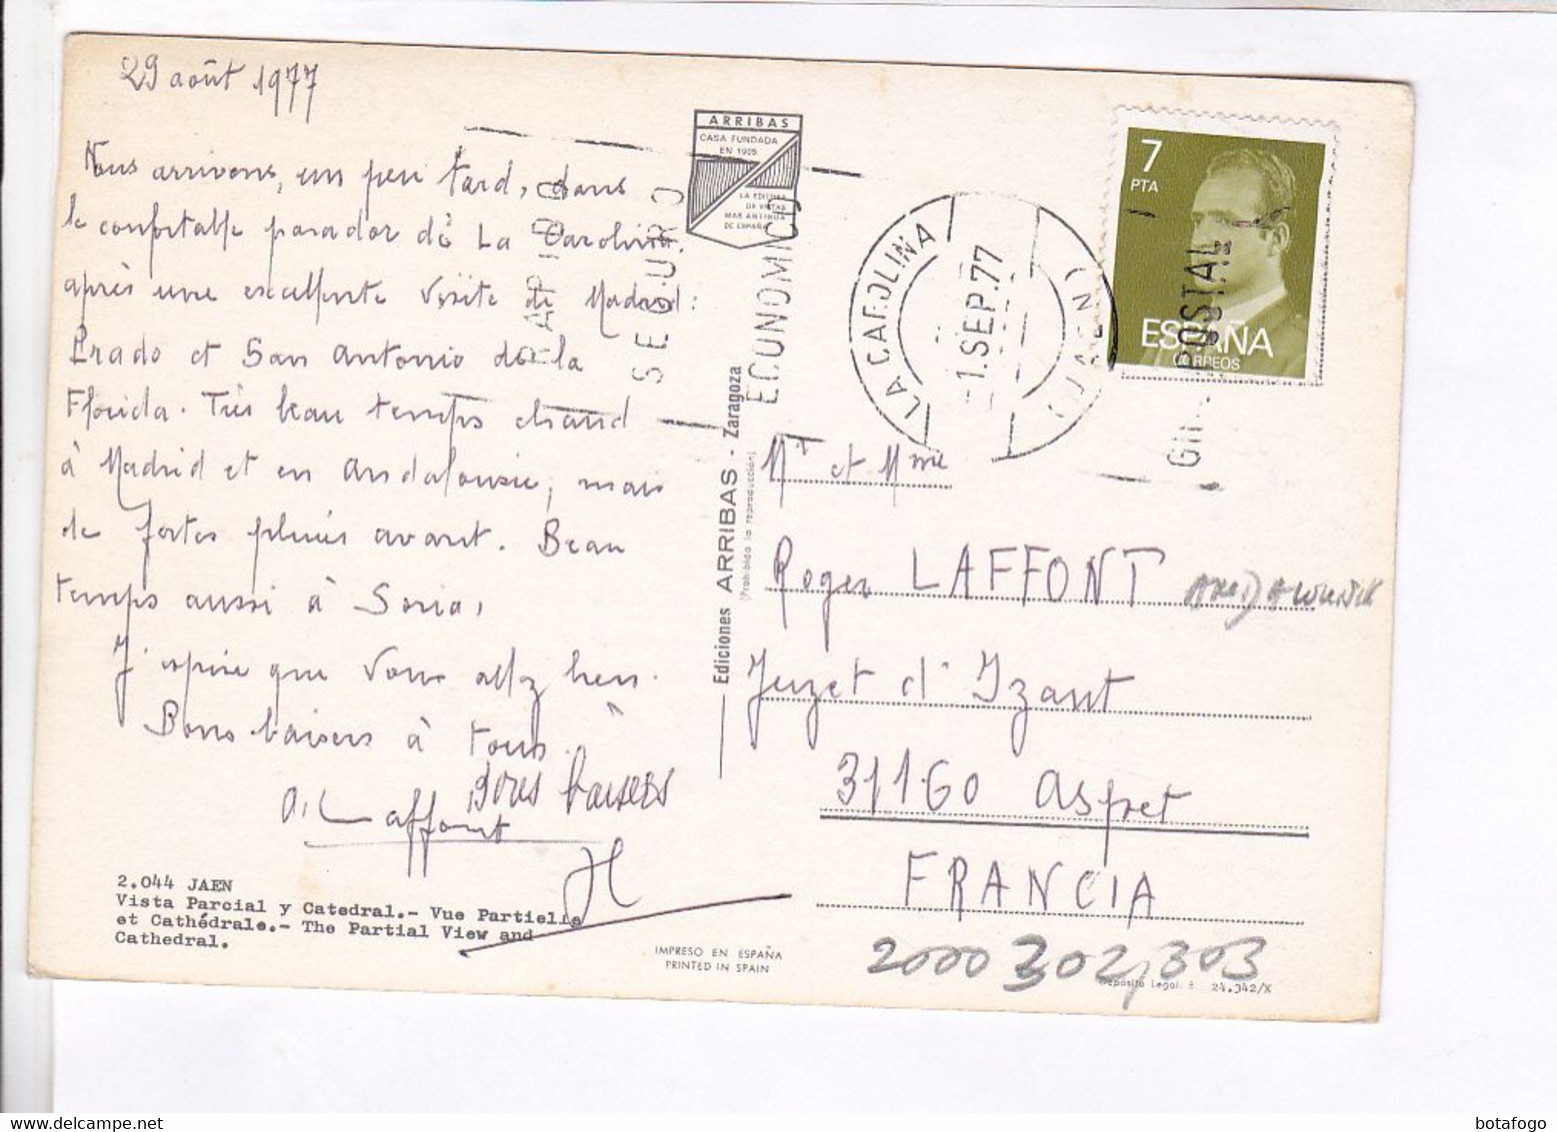 29 août 1977
Nous arrivons, un peu tard, dans
le confortable parador de La Carolina.
après une excellente visite de Madrid:
Prado et San Antonio de la
Florida. Très beau temps chaud
à Madrid et en Andalousie, mais
de fortes pluies avant. Beau
temps aussi à Soria,
J'espère que vous allez bien.
Bons baisers à tous.
Laffont
Bons baisers
2.044 JAEN
Vista Parcial y Catedral.- Vue Partielle
et Cathédrale.- The Partial View and
Cathedral.
ARRIBAS
CASA FUNDADA
EN 1905
LA EDITORA
DE VISTAS
MAS ANTIGUA
DE ESPAÑA
RAPIDO
SEGURO
ECONOMICO
Ediciones ARRIBAS - Zaragoza
(Prohibida la reproducción)
LA CAROLINA
-1.SEP.77
(JAEN)
POSTAL
7
PTA
ESPAÑA
CORREOS
Mr et Mme
Roger LAFFONT
Juzet d'Izaut
31160 Aspet
FRANCIA
2000 302,303
IMPRESO EN ESPAÑA
PRINTED IN SPAIN
Depósito Legal: 24.342/X
botafogo